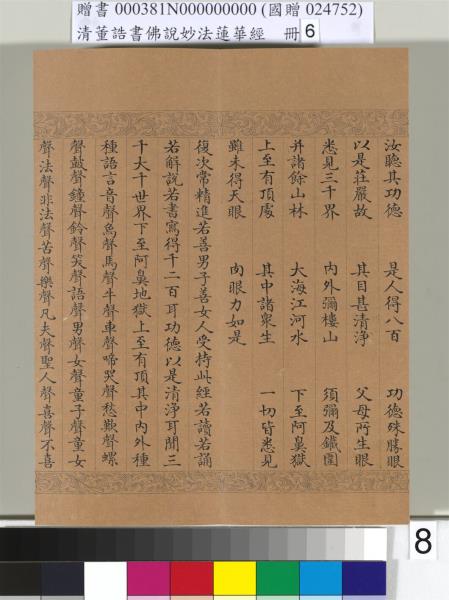 贈書 000381N000000000 (國贈 024752)
清董誥書佛說妙法蓮華經 冊 6
汝聽其功德 是人得八百 功德殊勝眼
以是莊嚴故 其目甚清淨 父母所生眼
悉見三千界 內外彌樓山 須彌及鐵圍
并諸餘山林 大海江河水 下至阿鼻獄
上至有頂處 其中諸衆生 一切皆悉見
雖未得天眼 肉眼力如是
復次常精進若善男子善女人受持此經若讀若誦
若解說若書寫得千二百耳功德以是清淨耳聞三
千大千世界下至阿鼻地獄上至有頂其中內外種
種語言音聲象聲馬聲牛聲車聲啼哭聲愁歎聲螺
聲鼓聲鐘聲鈴聲笑聲語聲男聲女聲童子聲童女
聲法聲非法聲苦聲樂聲凡夫聲聖人聲喜聲不喜
8